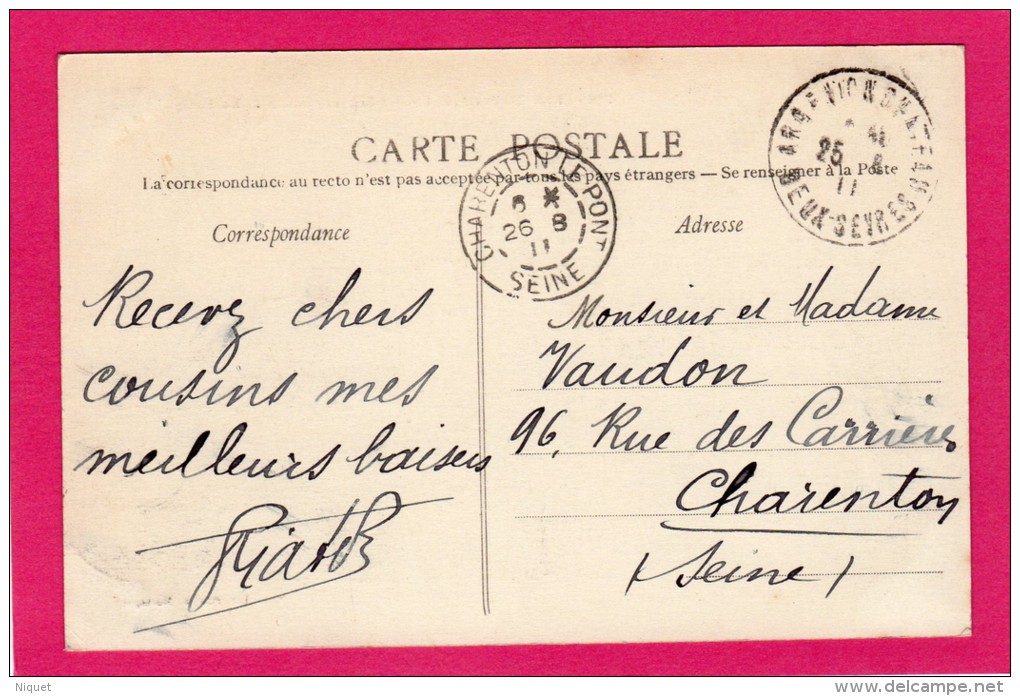 CARTE POSTALE
La correspondance au recto n'est pas acceptée par tous les pays étrangers — Se renseigner à la Poste
Correspondance
Adresse
CHARENTON LE PONT
6 *
26 - 8
11
SEINE
25
11
DEUX-SEVRES
Recevez chers
cousins mes
meilleurs baisers
Monsieur et Madame
Vaudon
96, Rue des Carrières
Charenton
(Seine)
Niquet
www.delcampe.net